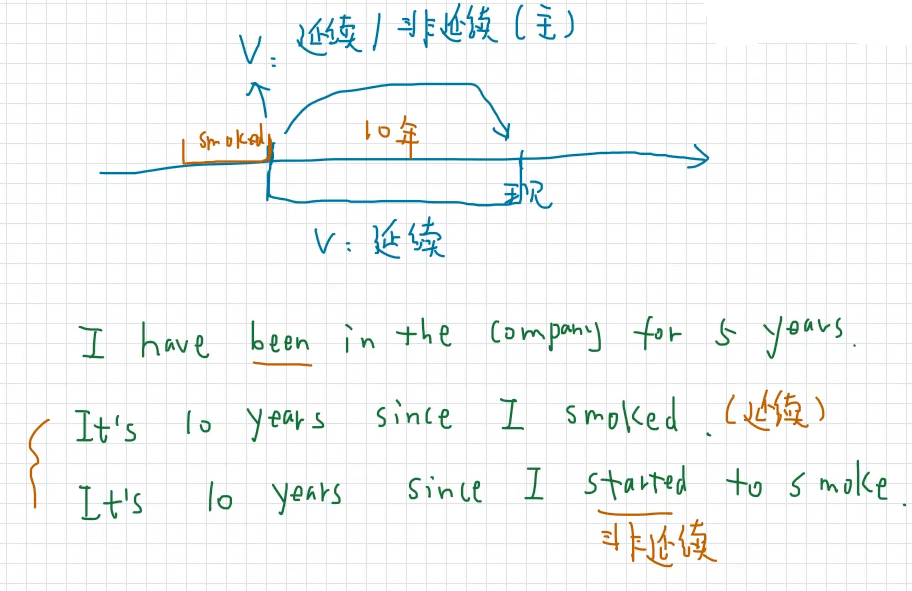 V: 延续 / 非延续 (主)
smoked 10年
现
V: 延续
I have been in the company for 5 years.
It's 10 years since I smoked. (延续)
It's 10 years since I started to smoke.
非延续